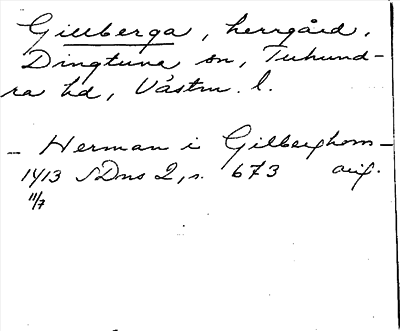 Gillberga, herrgård,
Dingtuna sn, Tuhund-
ra hd, Västm. l.
- Herman i Gilberghom -
1413 SDns 2, s. 673 orig.
11/7